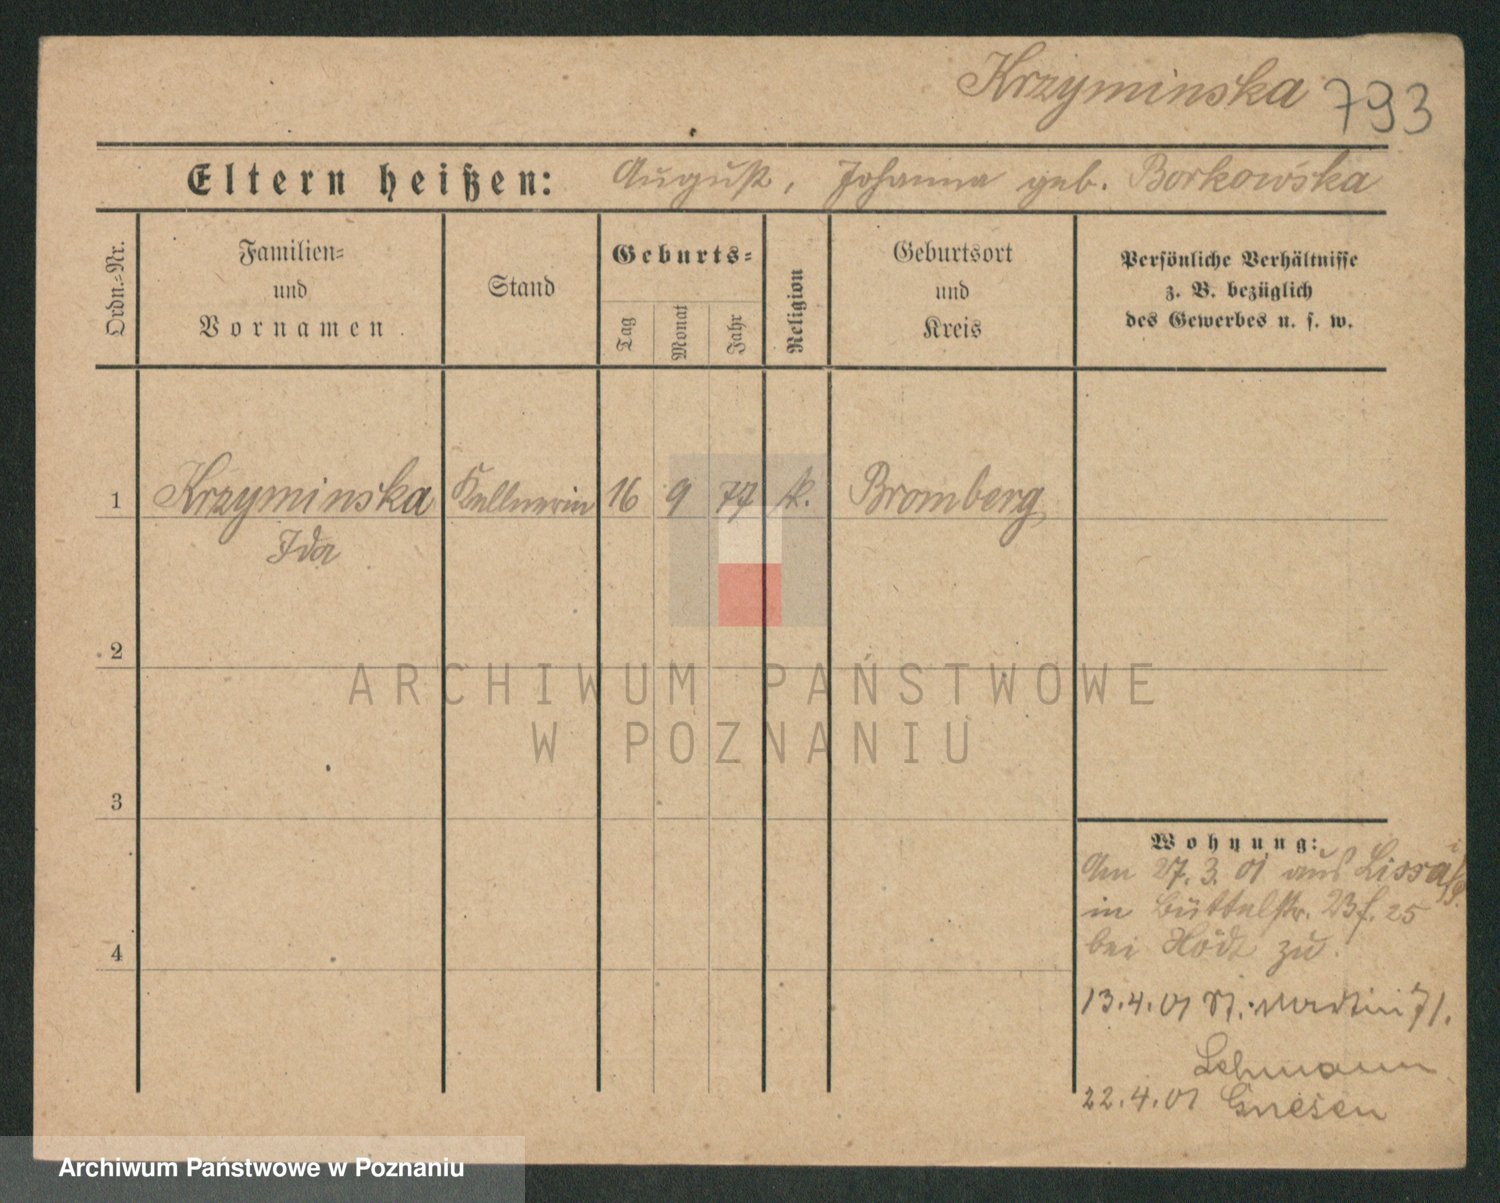 Krzyminska 793
Eltern heißen: August, Johanna geb. Borkowska
Ordn.-Nr.
Familien-
und
Vornamen
Stand
Geburts-
Tag
Monat
Jahr
Religion
Geburtsort
und
Kreis
Persönliche Verhältnisse
z. B. bezüglich
des Gewerbes u. s. w.
1 Krzyminska Kellnerin 16 9 77 k. Bromberg
Ida
2
ARCHIWUM PAŃSTWOWE
W POZNANIU
3
Wohnung:
Am 27. 3. 01 aus Lissa
in Büttelstr. 25
bei zu.
4
13.4.01 St. Martin 71.
Lehmann
22.4.01 Gnesen
Archiwum Państwowe w Poznaniu